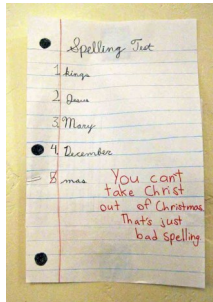 Spelling Test
1. kings
2. Jesus
3. Mary
4. December
5. mas
You cant
take Christ
out of Christmas
That's just
bad spelling.